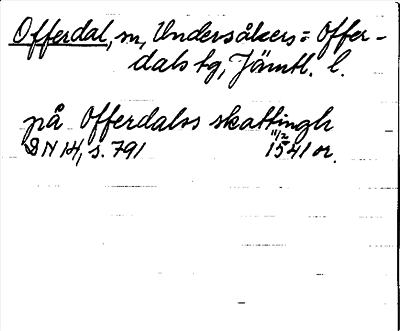 Offerdal, sn, Undersåkers = Offer-
dals tg, Jämtl. l.
på Offerdalss skattingh
DN 14, s. 791 11/2 1541 or.